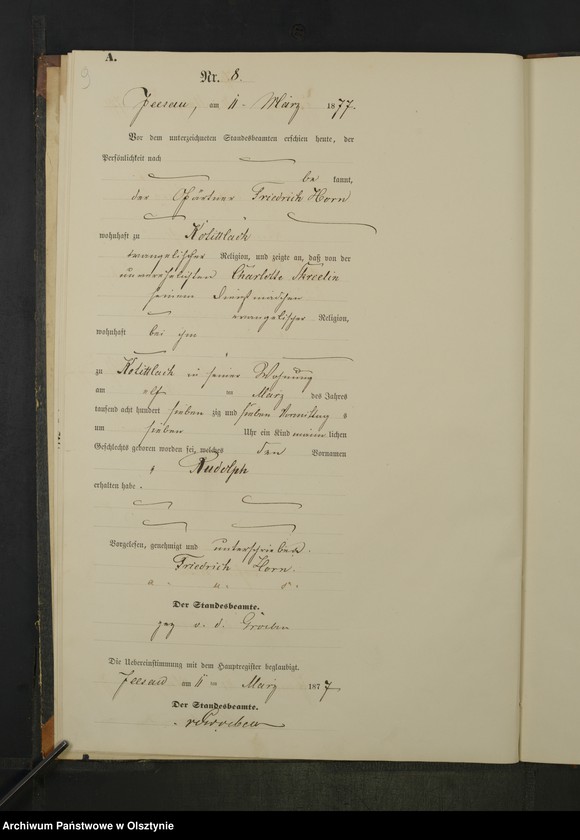 A.
9
Nr. 8.
Jeesau, am 11 ten März 1877.
Vor dem unterzeichneten Standesbeamten erschien heute, der
Persönlichkeit nach
be kannt,
der Gärtner Friedrich Horn
wohnhaft zu
evangelischer Religion, und zeigte an, daß von der
unverehelichten Charlotte
seinem Dienstmädchen
evangelischer Religion,
wohnhaft bei ihm
zu in seiner Wohnung
am elf ten März des Jahres
tausend acht hundert sieben zig und sieben Vormittag s
um sieben Uhr ein Kind männ lichen
Geschlechts geboren worden sei, welches den Vornamen
Rudolph
erhalten habe.
Vorgelesen, genehmigt und unterschrieben.
Friedrich Horn.
a. u. s.
Der Standesbeamte.
gez v. d. Gröben
Die Uebereinstimmung mit dem Hauptregister beglaubigt.
Jeesau am 11 ten März 1877
Der Standesbeamte.
Archiwum Państwowe w Olsztynie